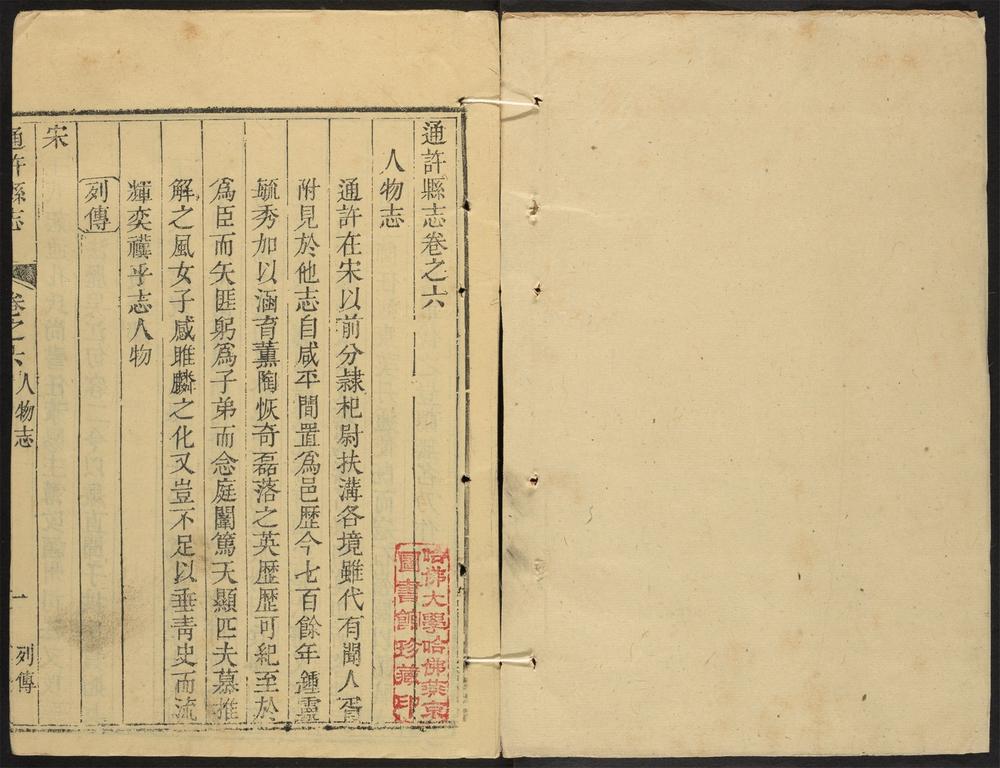 通許縣志卷之六
人物志
通許在宋以前分隷杞尉扶溝各境雖代有聞人胥
附見於他志自咸平間置爲邑歷今七百餘年鍾靈
毓秀加以涵育薰陶恢奇磊落之英歷歷可紀至於
爲臣而矢匪躬爲子弟而念庭闈篤天顯匹夫慕推
解之風女子感雎麟之化又豈不足以垂靑史而流
輝奕禩乎志人物
列傳
宋
通許縣志
卷之六
人物志
一
列傳
哈佛大學哈佛燕京
圖書館珍藏印